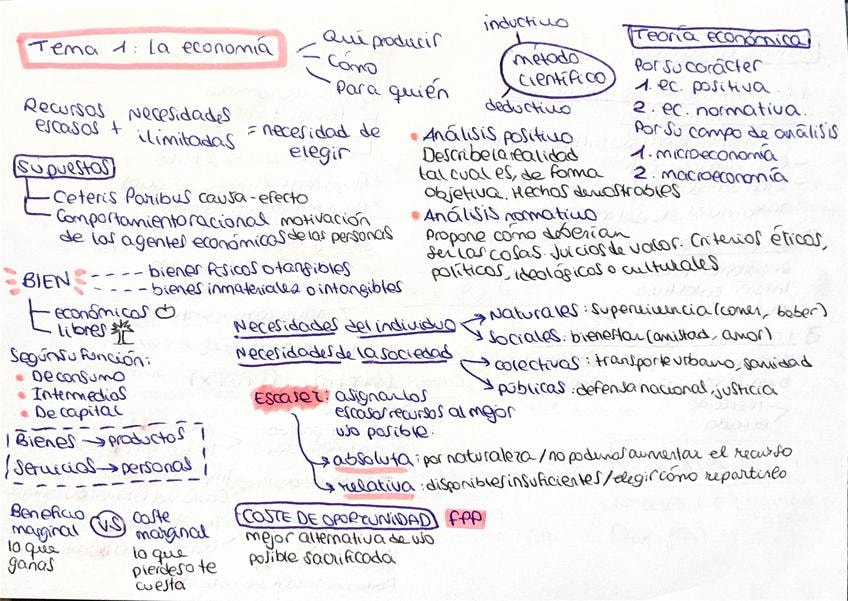 Tema 1: la economía
Qué producir
Cómo
Para quién
inductivo
método
científico
deductivo
Teoría económica
Por su carácter
1. ec. positiva
2. ec. normativa.
Por su campo de análisis
1. microeconomía
2. macroeconomía
Recursos escasos + necesidades ilimitadas = necesidad de elegir
Supuestos
Ceteris Paribus causa-efecto
Comportamiento racional motivación
de los agentes económicos de las personas
• Análisis positivo
Describe la realidad
tal cual es, de forma
objetiva. Hechos demostrables
• Análisis normativo
Propone cómo deberían
ser las cosas. Juicios de valor. Criterios éticos,
políticos, ideológicos o culturales
BIEN
bienes físicos o tangibles
bienes inmateriales o intangibles
económicos
libres
Según su función:
• De consumo
• Intermedios
• De capital
Bienes → productos
Servicios → personas
Necesidades del individuo
Naturales: supervivencia (comer, beber)
Sociales: bienestar (amistad, amor)
Necesidades de la sociedad
colectivas: transporte urbano, sanidad
públicas: defensa nacional, justicia
Escasez: asignar los
escasos recursos al mejor
uso posible.
absoluta: por naturaleza / no podemos aumentar el recurso
relativa: disponibles insuficientes / elegir cómo repartirlo
Beneficio
marginal
lo que
ganas
V.S
coste
marginal
lo que
pierdes o te
cuesta
COSTE DE OPORTUNIDAD FPP
mejor alternativa de uso
posible sacrificada